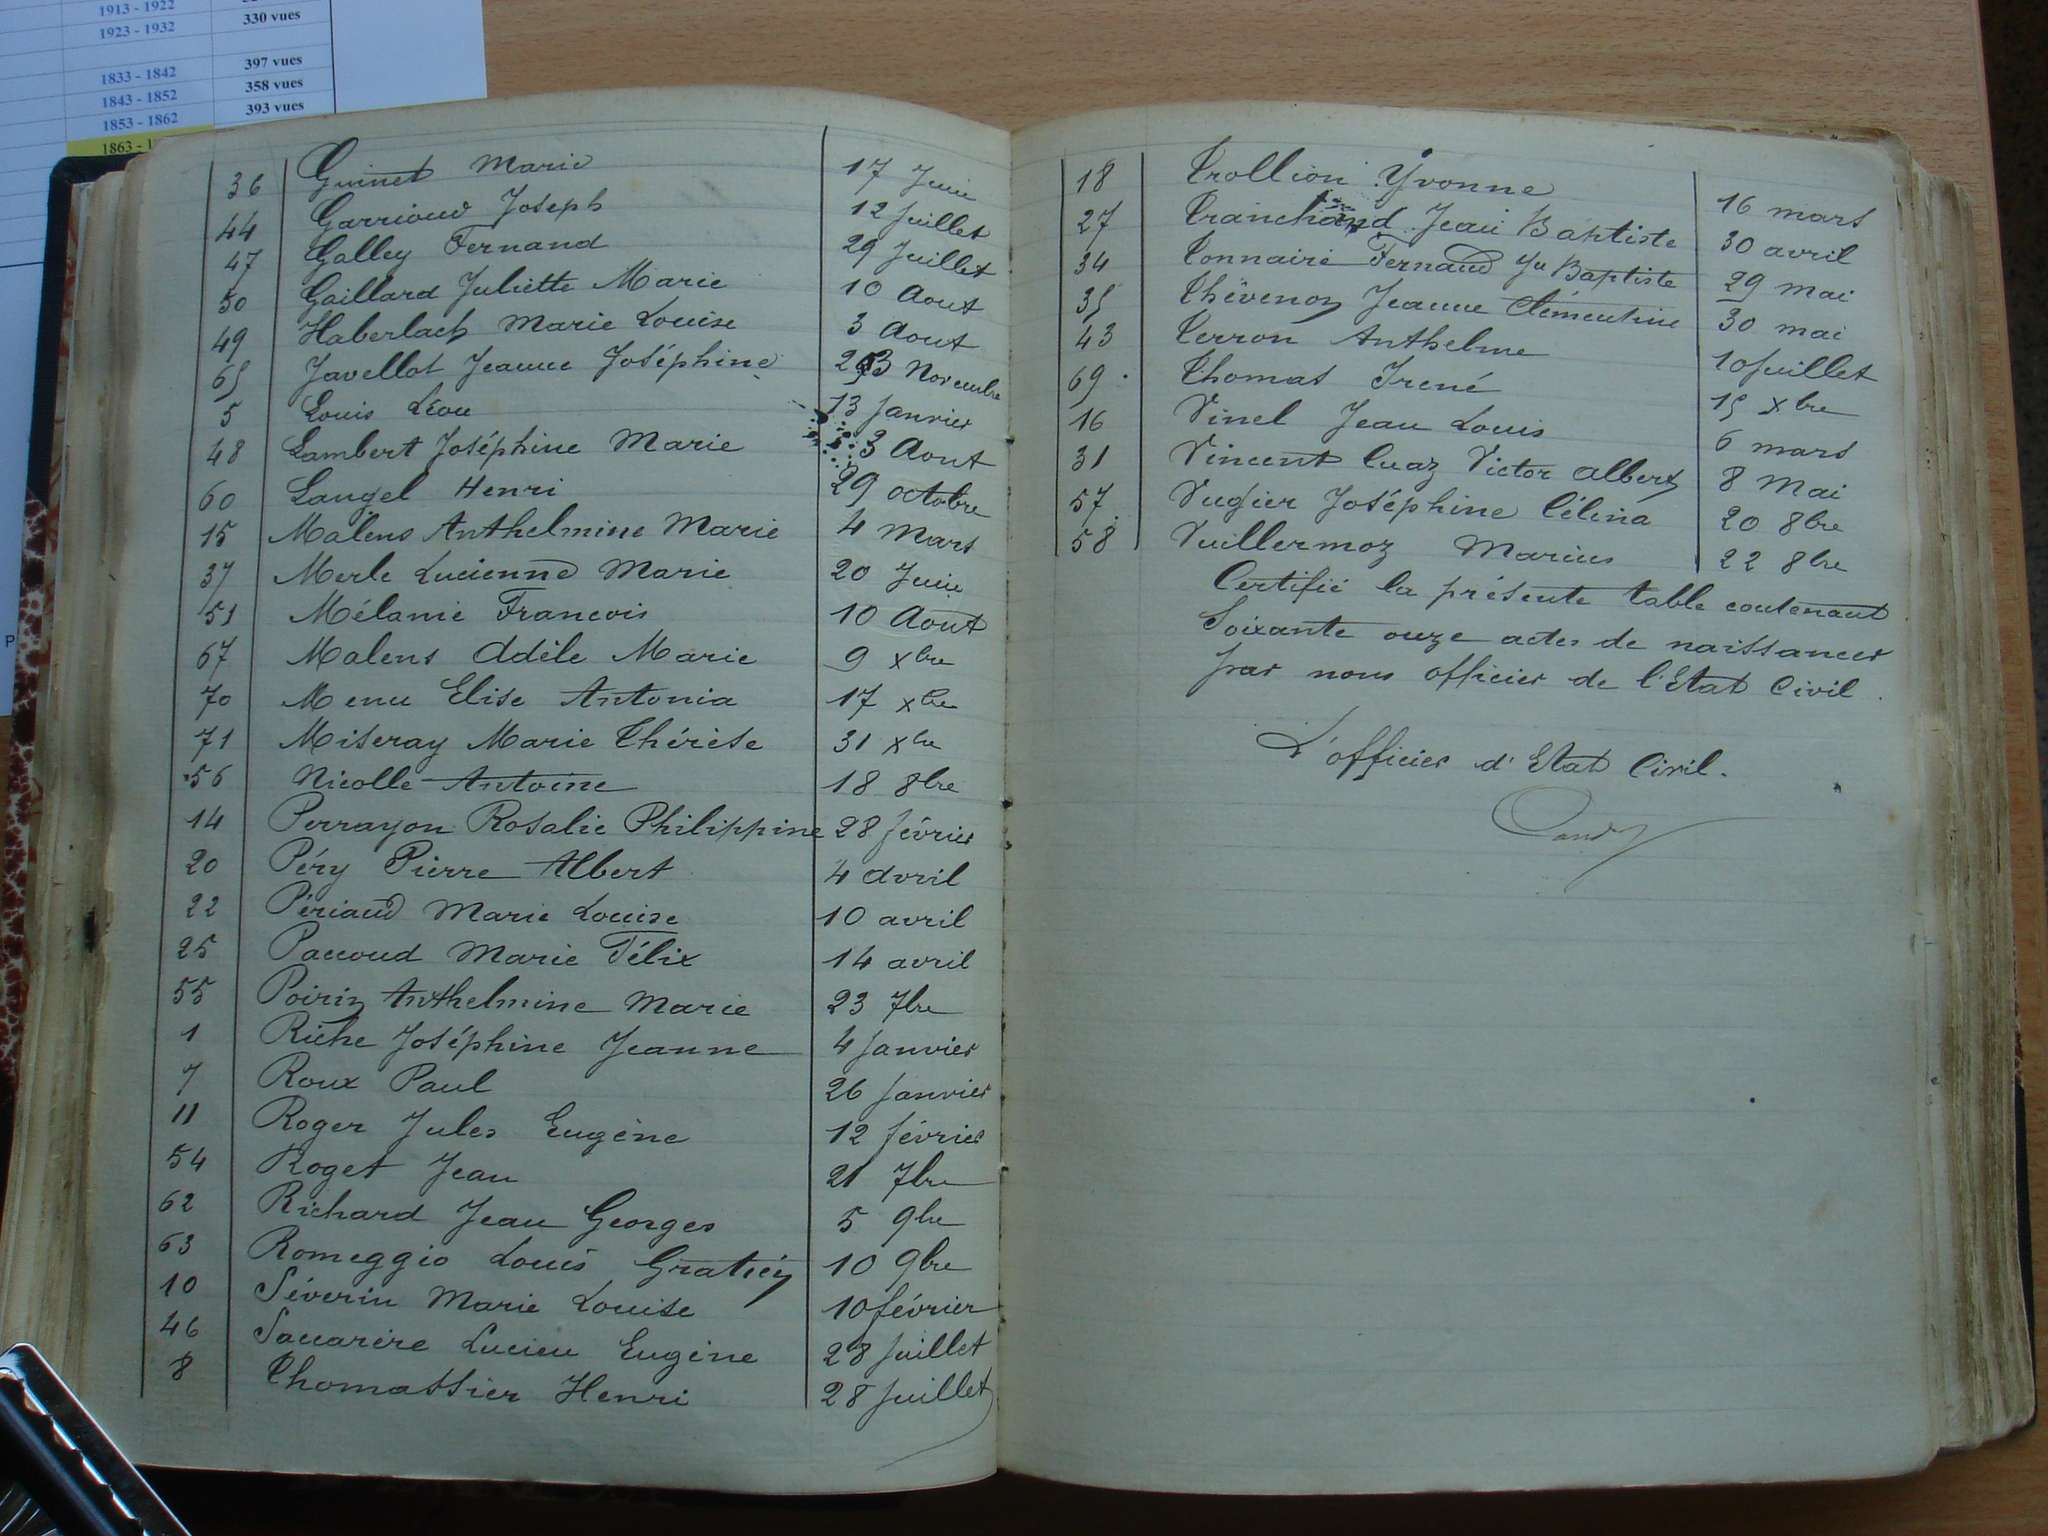 1913 - 1922
1923 - 1932 330 vues
1833 - 1842 397 vues
1843 - 1852 358 vues
1853 - 1862 393 vues
1863 -
36 Guinet Marie 17 Juin
44 Garrioud Joseph 12 Juillet
47 Galley Fernand 29 Juillet
50 Gaillard Juliette Marie 10 Aout
49 Haberlach Marie Louise 3 Aout
65 Javellot Jeanne Joséphine 23 Novembre
5 Louis Léon 13 Janvier
48 Lambert Joséphine Marie 3 Aout
60 Laugel Henri 29 octobre
15 Malens Anthelmine Marie 4 Mars
37 Merle Lucienne Marie 20 Juin
51 Mélanie Francois 10 Aout
67 Malens Adèle Marie 9 xbre
70 Menu Elise Antonia 17 xbre
71 Miseray Marie Thérèse 31 xbre
56 Nicolle Antoine 18 8bre
14 Perrayon Rosalie Philippine 28 février
20 Péry Pierre Albert 4 Avril
22 Périaud Marie Louise 10 avril
25 Paccoud Marie Félix 14 avril
55 Poirin Anthelmine Marie 23 7bre
1 Riche Joséphine Jeanne 4 Janvier
7 Roux Paul 26 Janvier
11 Roger Jules Eugène 12 février
54 Roget Jean 21 7bre
62 Richard Jean Georges 5 9bre
63 Romeggio Louis Gratien 10 9bre
10 Séverin Marie Louise 10 février
46 Saccarère Lucien Eugène 28 Juillet
8 Thomassier Henri 28 Juillet
18 Trollion Yvonne 16 mars
27 Tranchand Jean Baptiste 30 avril
34 Tonnaire Fernand Jn Baptiste 29 mai
35 Thévenon Jeanne Clémentine 30 mai
43 Terron Anthelme 10 Juillet
69 Thomas Irené 15 xbre
16 Vinel Jean Louis 6 mars
31 Vincent Cuaz Victor Albert 8 Mai
57 Vugier Joséphine Célina 20 8bre
58 Vuillermoz Marius 22 8bre
Certifié la présente table contenant
Soixante onze actes de naissances
par nous officier de l'Etat Civil.
L'officier d'Etat Civil.